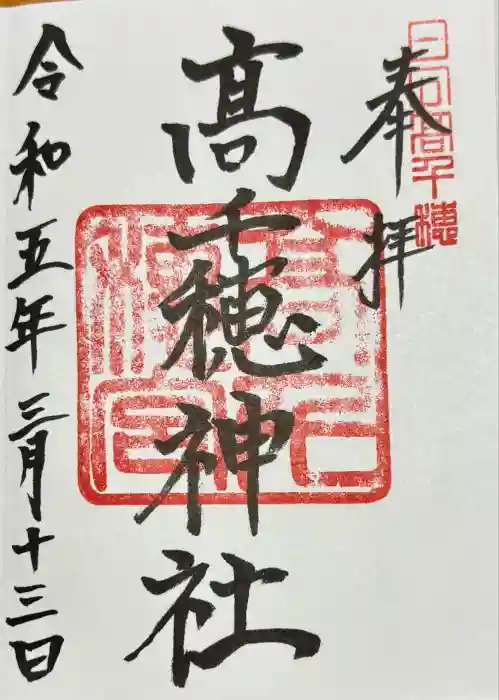 奉拝
日向髙千穂
髙千穂神社
令和五年三月十三日